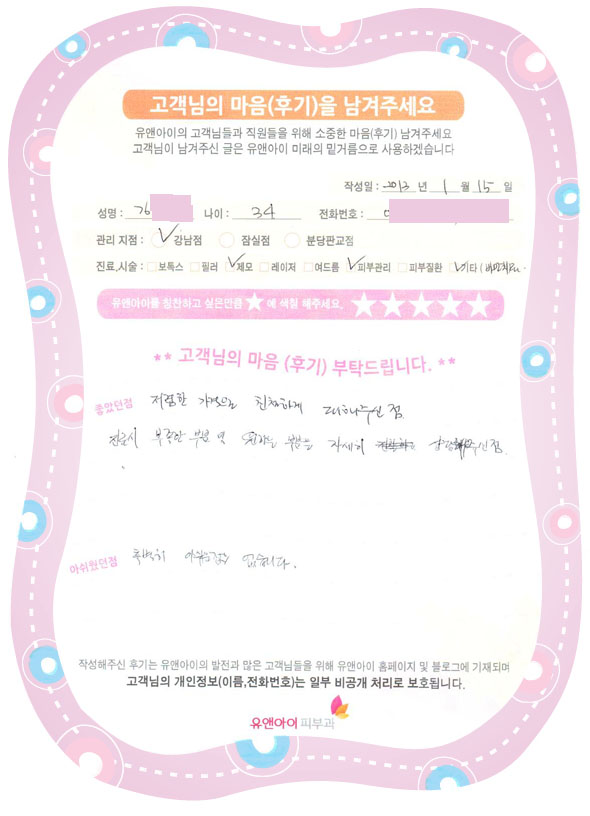 고객님의 마음(후기)을 남겨주세요
유앤아이의 고객님들과 직원들을 위해 소중한 마음(후기) 남겨주세요
고객님이 남겨주신 글은 유앤아이 미래의 밑거름으로 사용하겠습니다
작성일 : 2013 년 1 월 15 일
성명 : 76 나이 : 34 전화번호 : 0
관리 지점 : 강남점 잠실점 분당판교점
진료,시술 : 보톡스 필러 제모 레이저 여드름 피부관리 피부질환 기타 (
유앤아이를 칭찬하고 싶은만큼 ★ 에 색칠 해주세요.
** 고객님의 마음 (후기) 부탁드립니다. **
좋았던점 저렴한 가격으로 친절하게 대해주신 점.
진료시 부족한 부분 및 원하는 부분을 자세히 상담해주신점.
아쉬웠던점 특별히 아쉬운점은 없습니다.
작성해주신 후기는 유앤아이의 발전과 많은 고객님들을 위해 유앤아이 홈페이지 및 블로그에 기재되며
고객님의 개인정보(이름,전화번호)는 일부 비공개 처리로 보호됩니다.
유앤아이 피부과